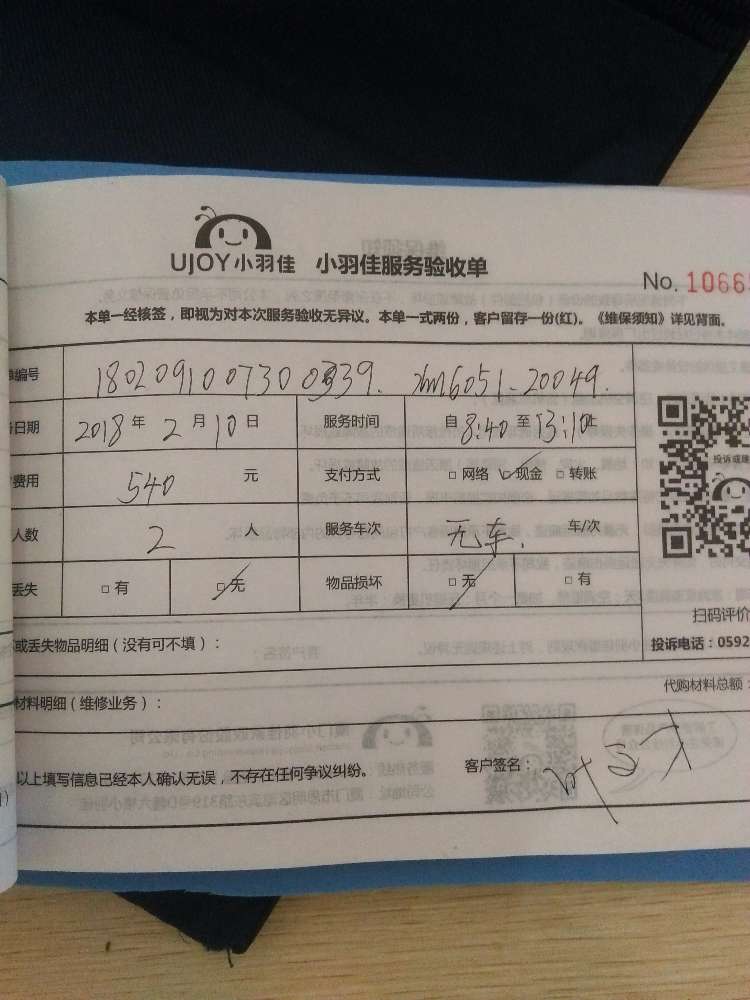 UJOY小羽佳 小羽佳服务验收单
No. 1066
本单一经核签，即视为对本次服务验收无异议。本单一式两份，客户留存一份(红)。《维保须知》详见背面。
编号 180209100730 xm6051-20049.
日期 2018 年 2 月 10 日 服务时间 自 8:40 至 13:10 止
费用 540 元 支付方式 □网络 ☑现金 □转账
人数 2 人 服务车次 无车. 车/次
丢失 □有 ☑无 物品损坏 ☑无 □有
投诉或建
扫码评价
或丢失物品明细（没有可不填）： 投诉电话：0592
材料明细（维修业务）： 代购材料总额：
以上填写信息已经本人确认无误，不存在任何争议纠纷。 客户签名：